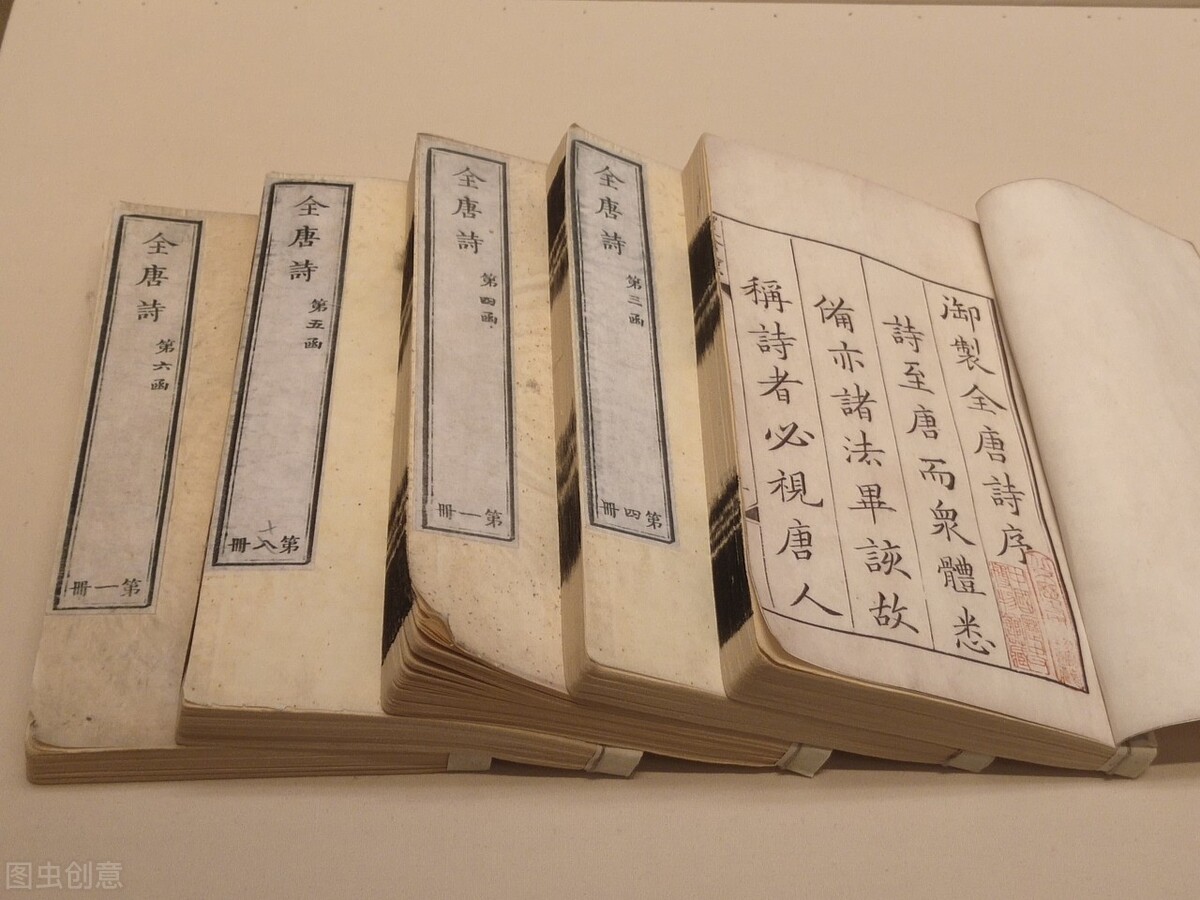 全唐詩
第六函
第一冊
全唐詩
第五函
第八冊
全唐詩
第四函
第一冊
全唐詩
第三函
第四冊
御製全唐詩序
詩至唐而衆體悉
備亦諸法畢該故
稱詩者必視唐人
图虫创意